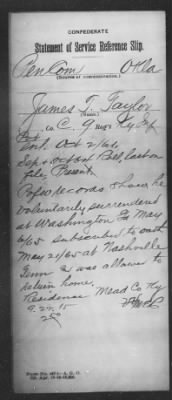 CONFEDERATE
Statement of Service Reference Slip.
Pen Com, Okla
(Source of communication.)
James T. Taylor
(Name.)
Pvt, Co. C. 9 Reg't Ky Inf
Enl. Oct 2/61
Sep & Oct 64 Roll, last on
file Present.
Pof W records show he
voluntarily surrendered
at Washington Ga May
6/65 subscribed to oath
May 21/65 at Nashville
Tenn & was allowed to
return home.
Residence Mead Co Ky
9.24.15